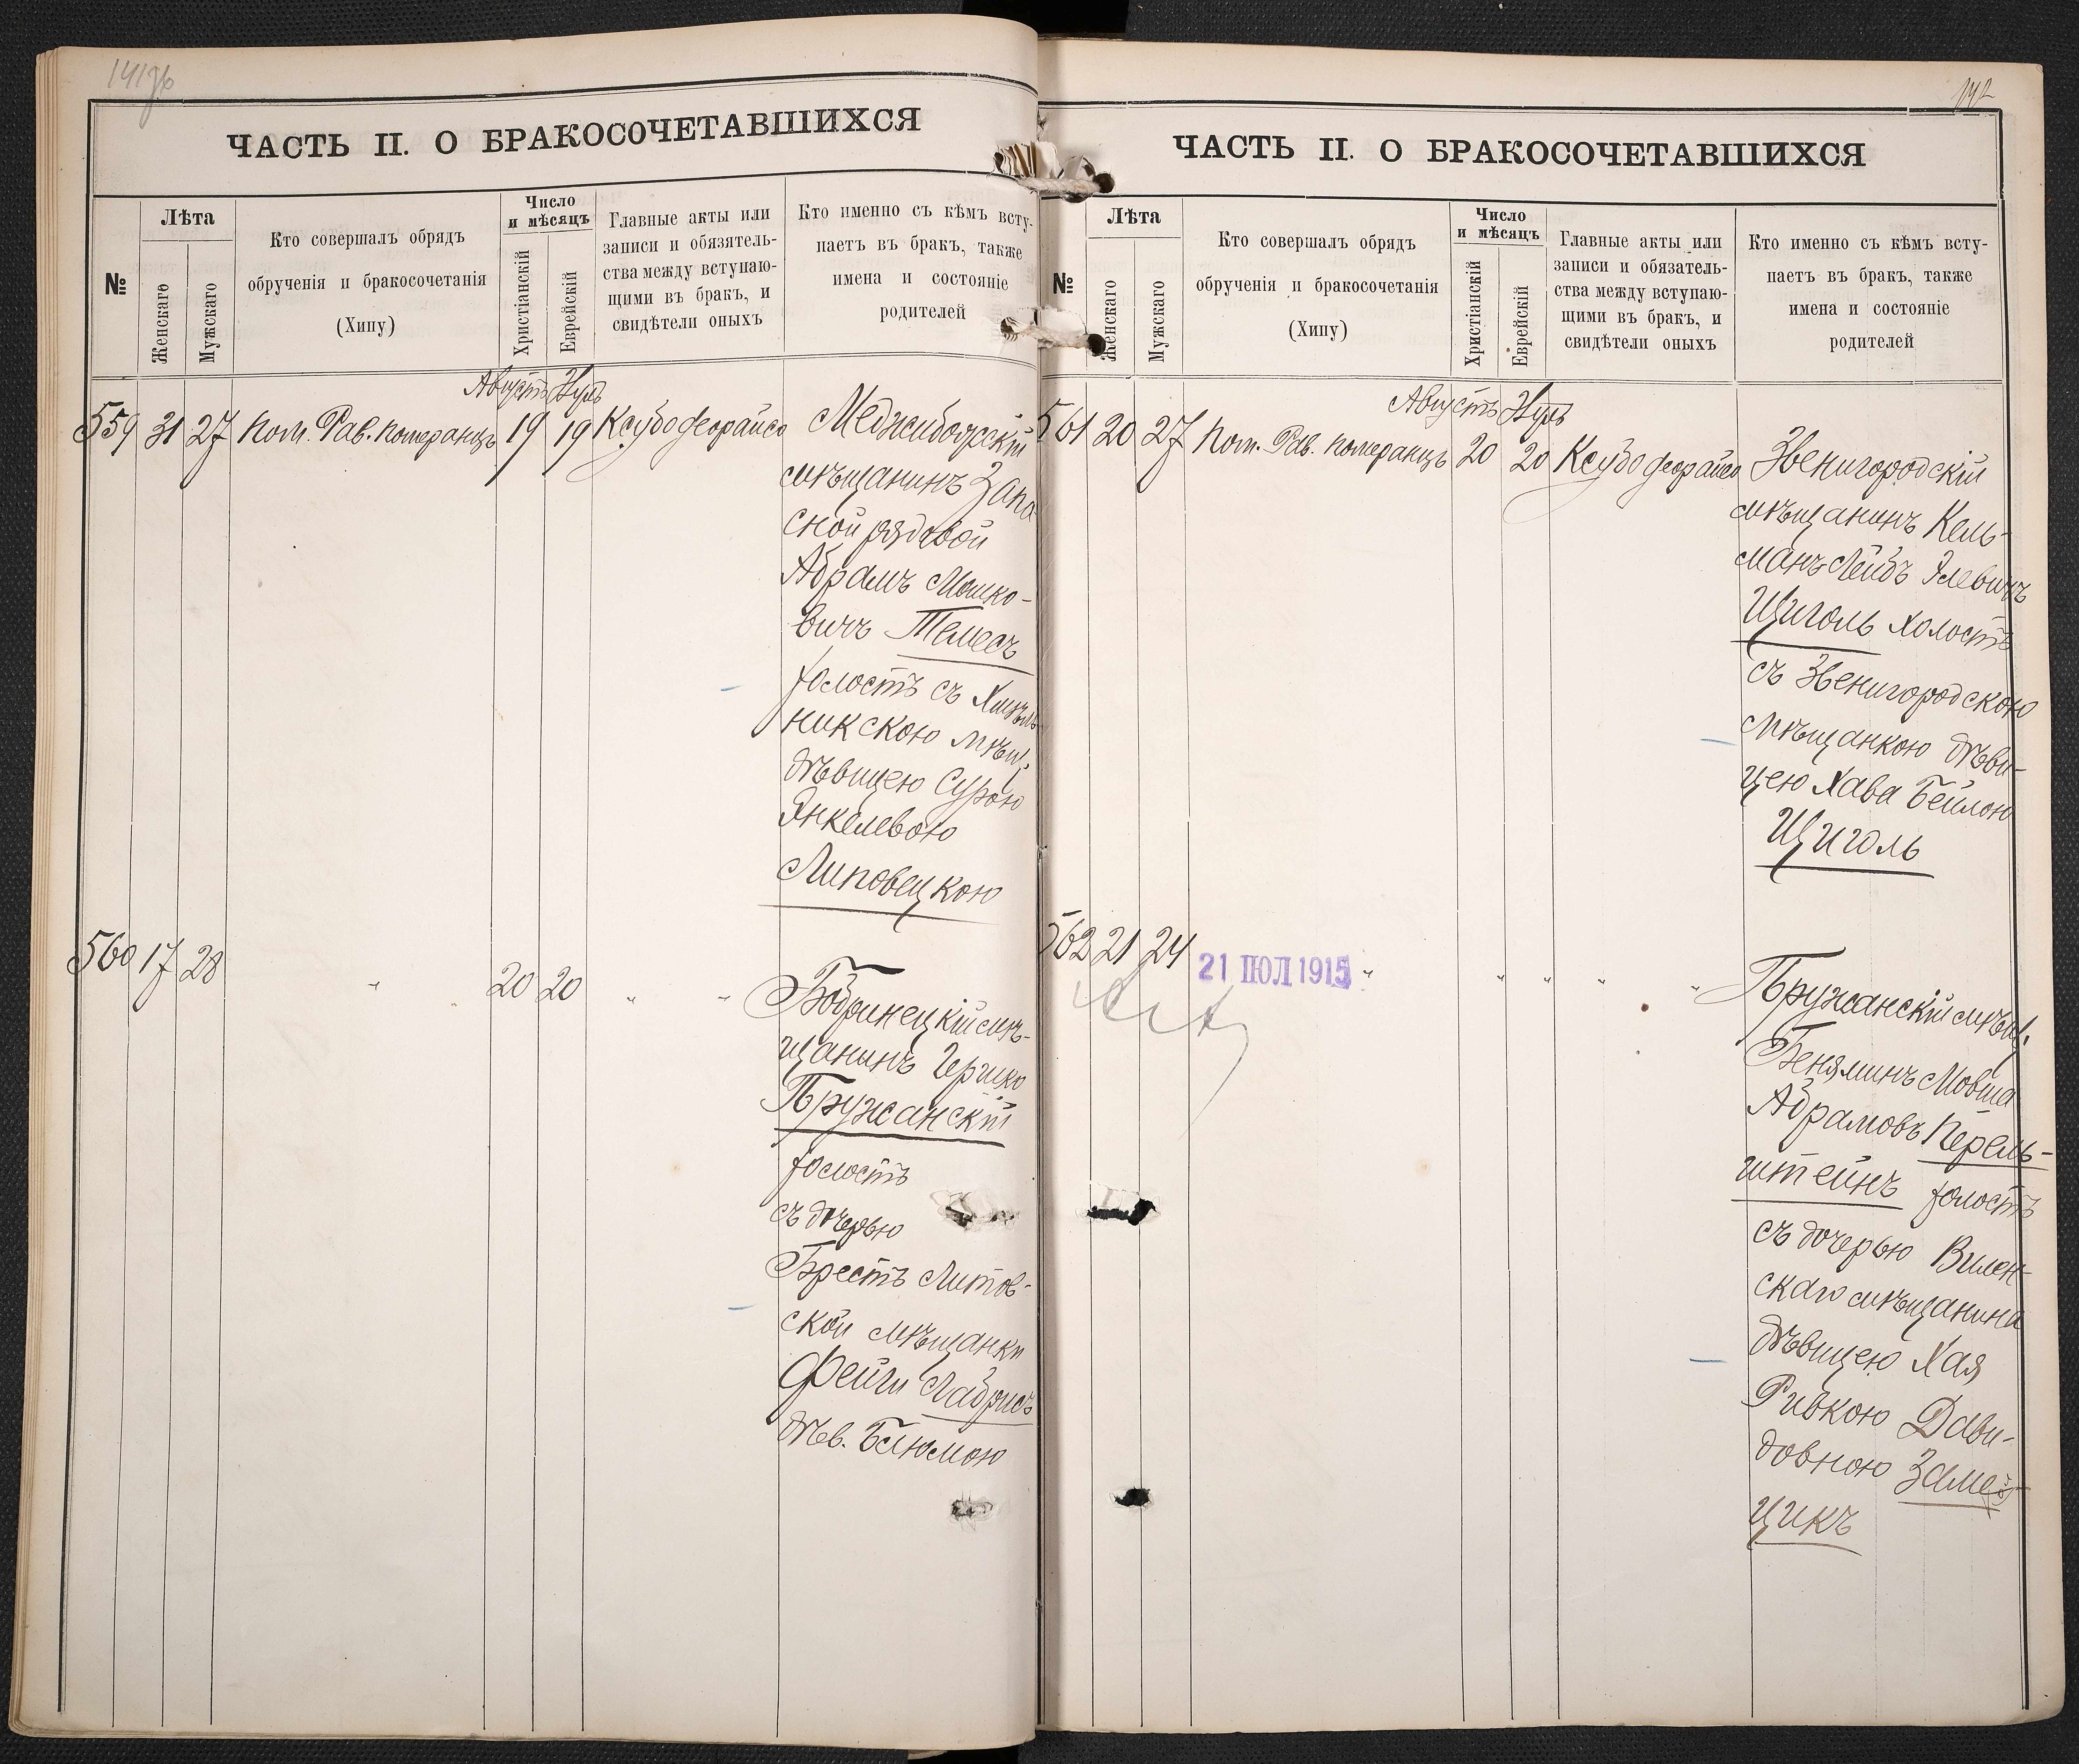 141об
ЧАСТЬ II. О БРАКОСОЧЕТАВШИХСЯ
№
Лѣта
Женскаго
Мужскаго
Кто совершалъ обрядъ
обрученія и бракосочетанія
(Хипу)
Число
и мѣсяцъ
Христіанскій
Еврейскій
Главные акты или
записи и обязатель-
ства между вступаю-
щими въ бракъ, и
свидѣтели оныхъ
Кто именно съ кѣмъ всту-
паетъ въ бракъ, также
имена и состояніе
родителей
Августъ
559 31 27 Пом. Рав. Померанцъ 19 19 Ксубо деорайсо
Меджибожскій
мѣщанинъ Запа
сной рядовой
Абрамъ Мошко-
вичъ Темесъ
холостъ съ Хмѣль
никскою мѣщ.
дѣвицею Сурою
Янкелевою
Липовецкою
560 17 28 " 20 20 " "
Бобринецкій мѣ-
щанинъ Гершко
Пружанскій
холостъ
съ дочерью
Брестъ Литов-
ской мѣщанки
Фейги Лабрисъ
дѣв. Блюмою
142
ЧАСТЬ II. О БРАКОСОЧЕТАВШИХСЯ
№
Лѣта
Женскаго
Мужскаго
Кто совершалъ обрядъ
обрученія и бракосочетанія
(Хипу)
Число
и мѣсяцъ
Христіанскій
Еврейскій
Главные акты или
записи и обязатель-
ства между вступаю-
щими въ бракъ, и
свидѣтели оныхъ
Кто именно съ кѣмъ всту-
паетъ въ бракъ, также
имена и состояніе
родителей
Августъ
561 20 27 Пом. Рав. Померанцъ 20 20 Ксубо деорайсо
Звенигородскій
мѣщанинъ Кель-
манъ Лейбъ Элевичъ
Циголь холостъ
съ Звенигородскою
мѣщанкою дѣви-
цею Хава Бейлою
Циголь
562 21 24 " " " " "
21 ІЮЛ 1915
Пружанскій мѣщ.
Беняминъ Мовша
Абрамовъ Перель-
штейнъ холостъ
съ дочерью Вилен-
скаго мѣщанина
дѣвицею Хая
Ривкою Дави-
довною
цикъ